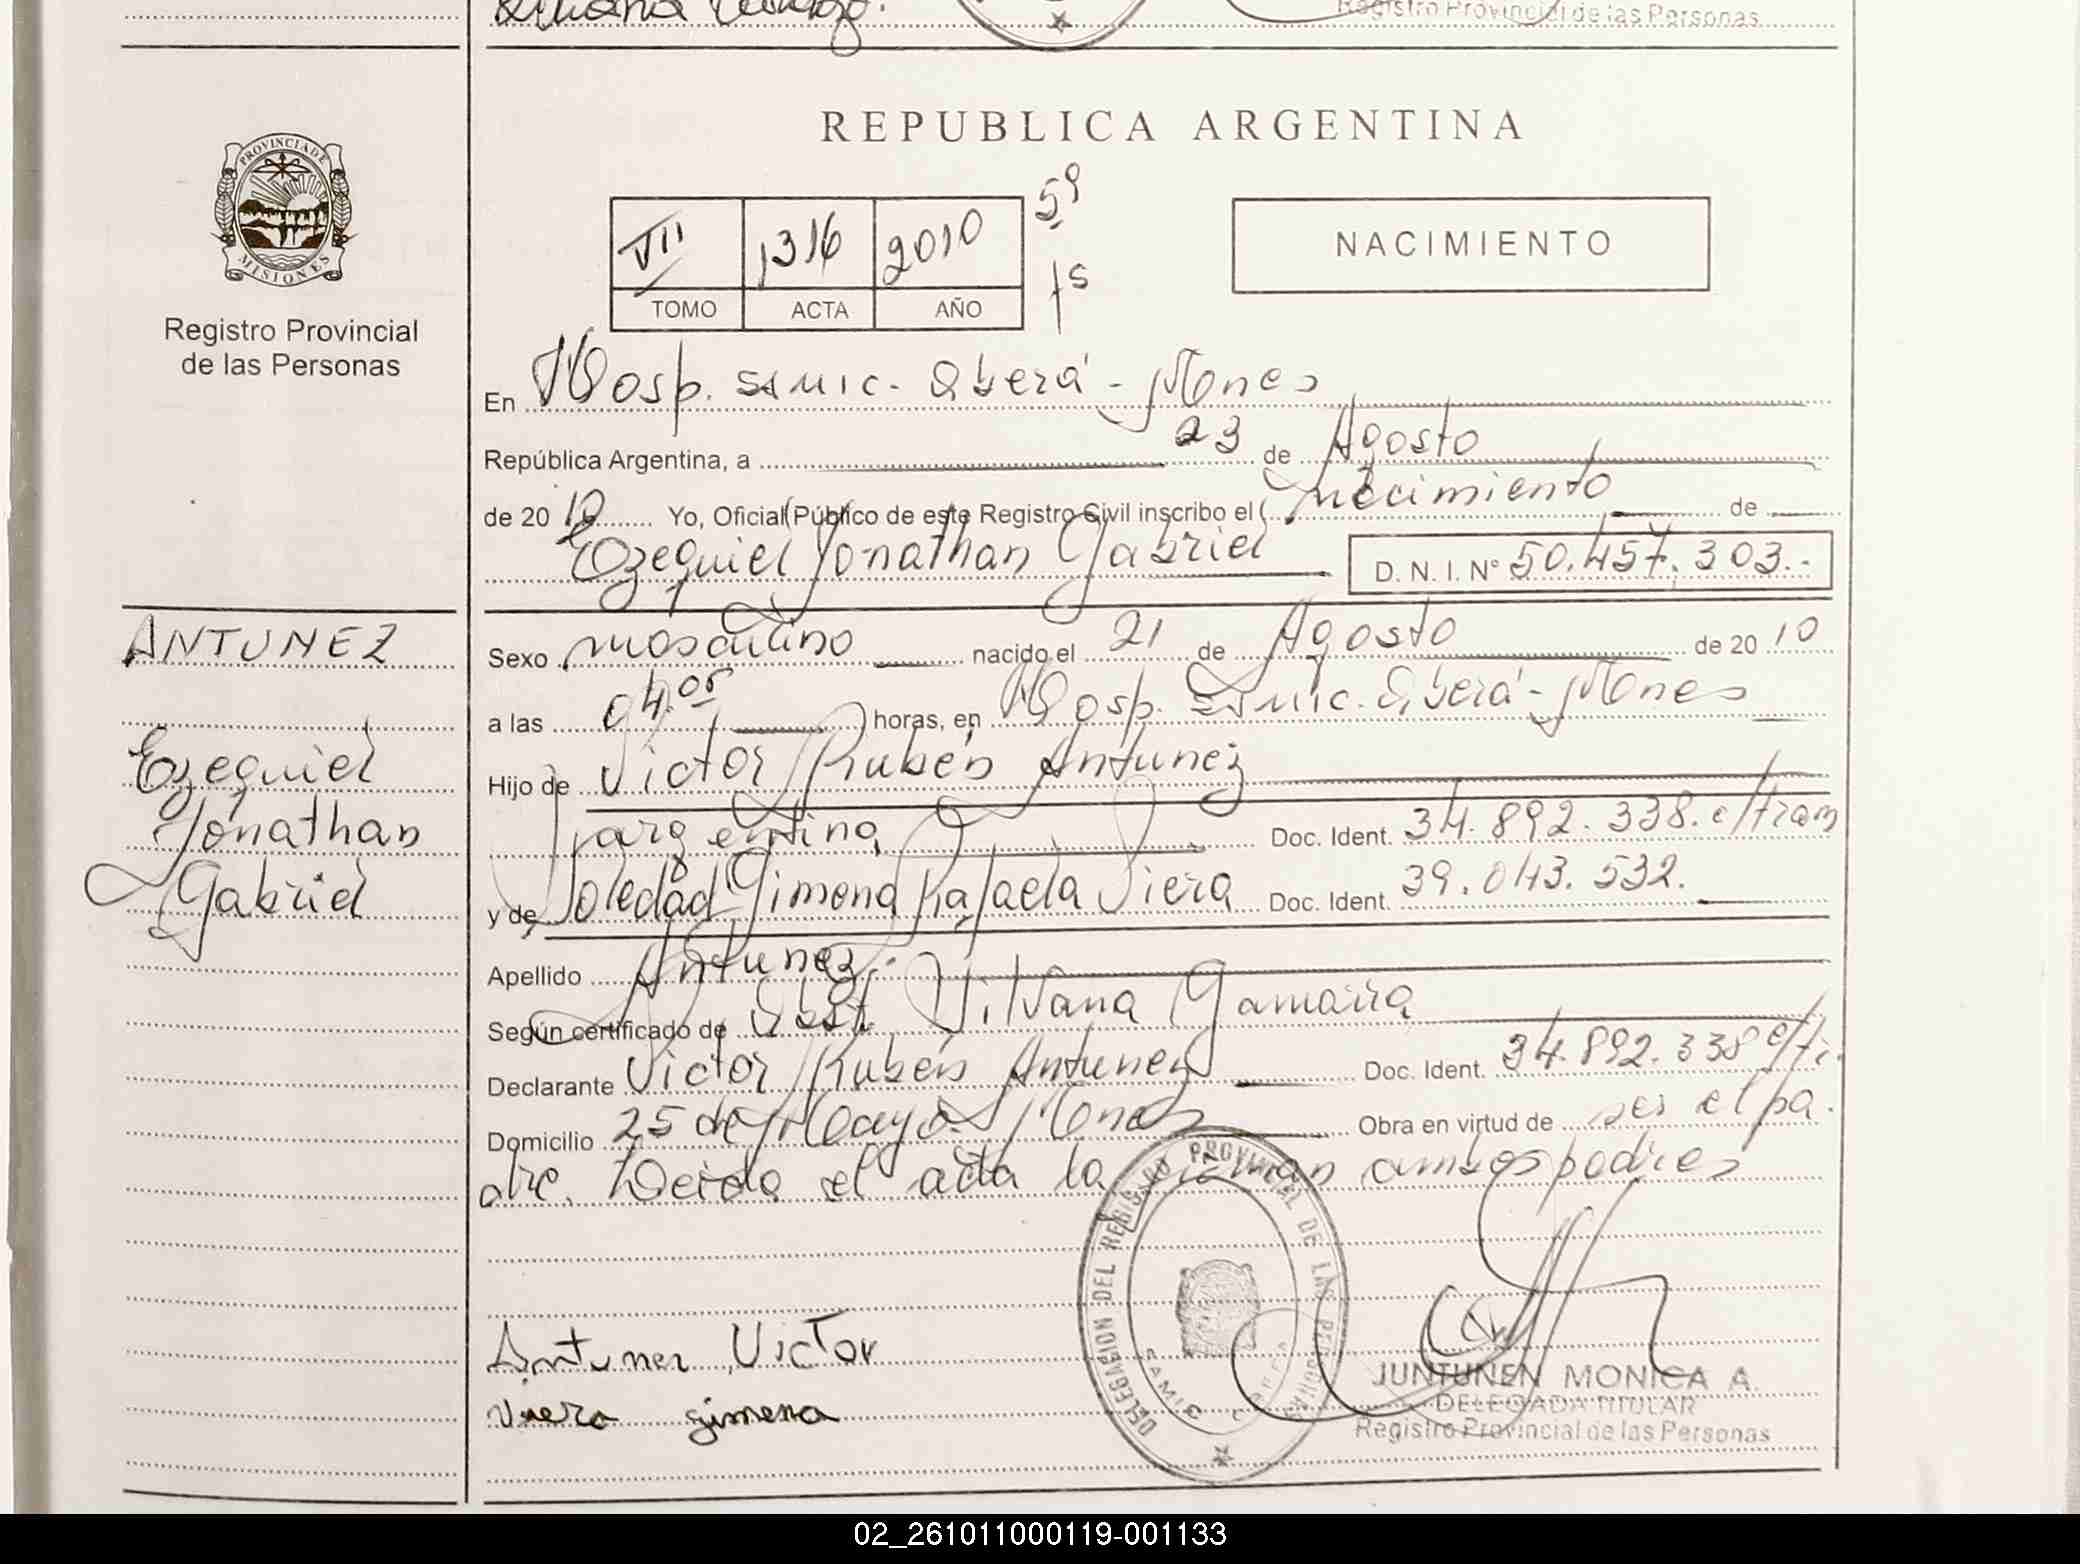 Registro Provincial de las Personas
PROVINCIA DE
MISIONES
Registro Provincial
de las Personas
REPUBLICA ARGENTINA
VII 1316 2010 5º
TOMO ACTA AÑO
NACIMIENTO
En Hosp. SAMIC. Oberá - Mnes
República Argentina, a 23 de Agosto
de 2010 Yo, Oficial Público de este Registro Civil inscribo el nacimiento de
Ezequiel Jonathan Gabriel D. N. I. Nº 50.457.303.-
ANTUNEZ
Ezequiel
Jonathan
Gabriel
Sexo masculino nacido el 21 de Agosto de 2010
a las 04.05 horas, en Hosp. SAMIC. Oberá - Mnes
Hijo de Victor Rubén Antunez
argentina Doc. Ident. 34.892.338. e/tram
y de Soledad Gimena Rafaela Viera Doc. Ident. 39.043.532.
Apellido Antunez.-
Según certificado de Obst. Silvana Gamarra
Declarante Victor Rubén Antunez Doc. Ident. 34.892.338 e/tr.
Domicilio 25 de Mayo Mnes Obra en virtud de ser el pa.
dre. Leida el acta la firman ambos padres
Antunez Victor
Viera gimena
DELEGACION DEL REGISTRO PROVINCIAL DE LAS PERSONAS
JUNTUNEN MONICA A.
DELEGADA TITULAR
Registro Provincial de las Personas
02_261011000119-001133